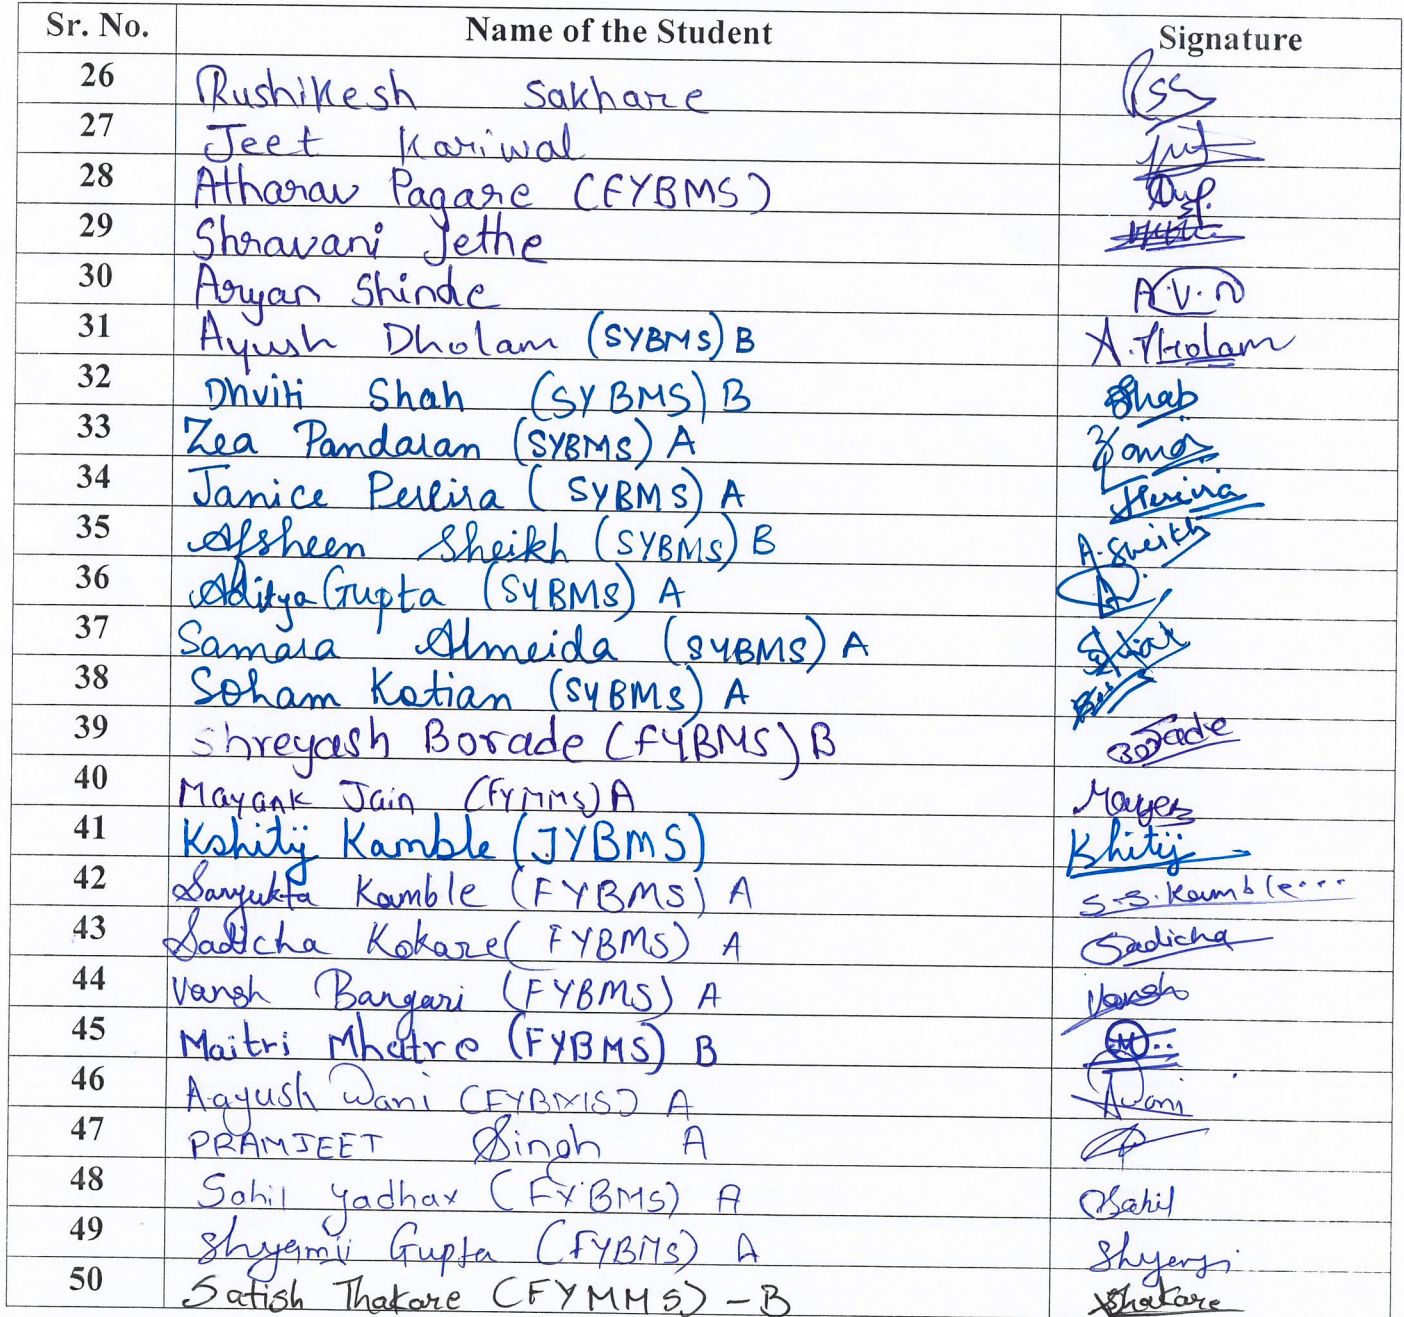 Sr. No. Name of the Student Signature
26 Rushikesh Sakhare
27 Jeet Kariwal
28 Atharav Pagare (FYBMS)
29 Shravani Jethe
30 Aryan Shinde A.V.N
31 Ayush Dholam (SYBMS) B A.Dholam
32 Dhviti Shah (SYBMS) B Shah
33 Zea Pandaran (SYBMS) A
34 Janice Pereira (SYBMS) A Pereira
35 Afsheen Sheikh (SYBMS) B A.Sheikh
36 Aditya Gupta (SYBMS) A
37 Samara Almeida (SYBMS) A
38 Soham Kotian (SYBMS) A
39 Shreyash Borade (FYBMS) B Borade
40 Mayank Jain (FYMMS) A
41 Kshitij Kamble (JYBMS) Khitij
42 Sanyukta Kamble (FYBMS) A S.S.Kamble...
43 Sadicha Kokare (FYBMS) A Sadicha
44 Vansh Bangari (FYBMS) A Vansh
45 Maitri Mhatre (FYBMS) B M..
46 Aayush Wani (FYBMS) A AWani
47 PRAMJEET Singh A
48 Sahil Yadhav (FYBMS) A Sahil
49 Gupta (FYBMS) A
50 Satish Thakare (FYMMS) - B Thakare